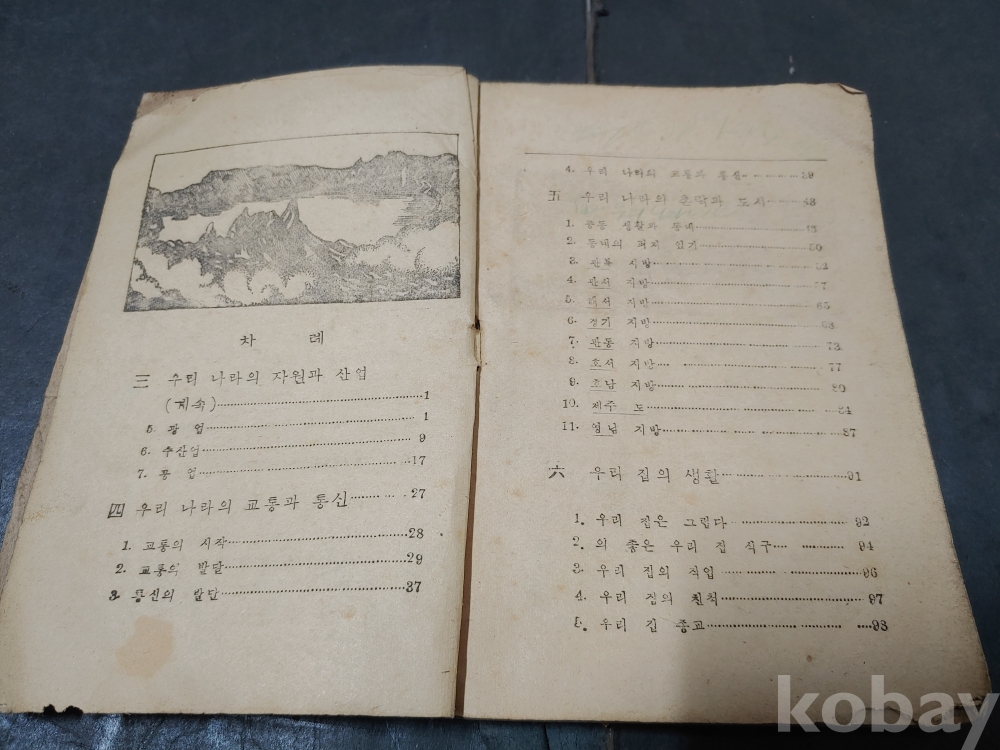 차 례
三 우리 나라의 자원과 산업
(계속)……1
5. 광 업……1
6. 수산업……9
7. 공 업……17
四 우리 나라의 교통과 통신……27
1. 교통의 시작……28
2. 교통의 발달……29
3. 통신의 발달……37
4. 우리 나라의 교통과 통신……39
五 우리 나라의 촌락과 도시……48
1. 공동 생활과 동네……
2. 동네의
3. 관북 지방……
4. 관서 지방……
5. 해서 지방……65
6. 경기 지방……68
7. 관동 지방……73
8. 호서 지방……77
9. 호남 지방……80
10. 제주 도……84
11. 영남 지방……87
六 우리 집의 생활……91
1. 우리 집은 그립다……92
2. 의 좋은 우리 집 식구……94
3. 우리 집의 직업……96
4. 우리 집의 친척……97
5. 우리 집 종교……98
kobay